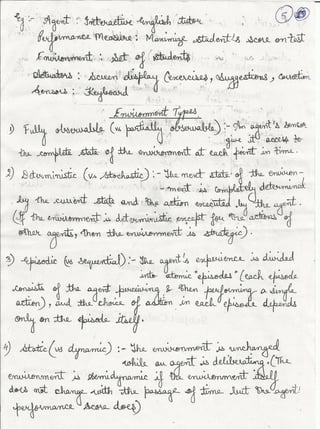 Eg :- Agent : Interactive English tutor
5
Performance Measure : Maximize student's score on test
Environment : Set of students
Actuators : Screen display (exercises, suggestions, correction
Sensors : Keyboard
Environment Types
1) Fully observable (vs partially observable) :- An agent's sensor
give it access to
the complete state of the environment at each point in time.
2) Deterministic (vs Stochastic) :- The next state of the environ-
-ment is completely determined
by the current state and the action executed by the agent.
(If the environment is deterministic except for the actions of
other agents, then the environment is strategic).
3) Episodic (vs sequential) :- The agent's experience is divided
into atomic "episodes" (each episode
consists of the agent perceiving & then performing a single
action), and the choice of action in each episode depends
only on the episode itself.
4) Static (vs dynamic) :- The environment is unchanged
while an agent is deliberating. (The
environment is semidynamic if the environment itself
does not change with the passage of time but the agent'
performance score does)